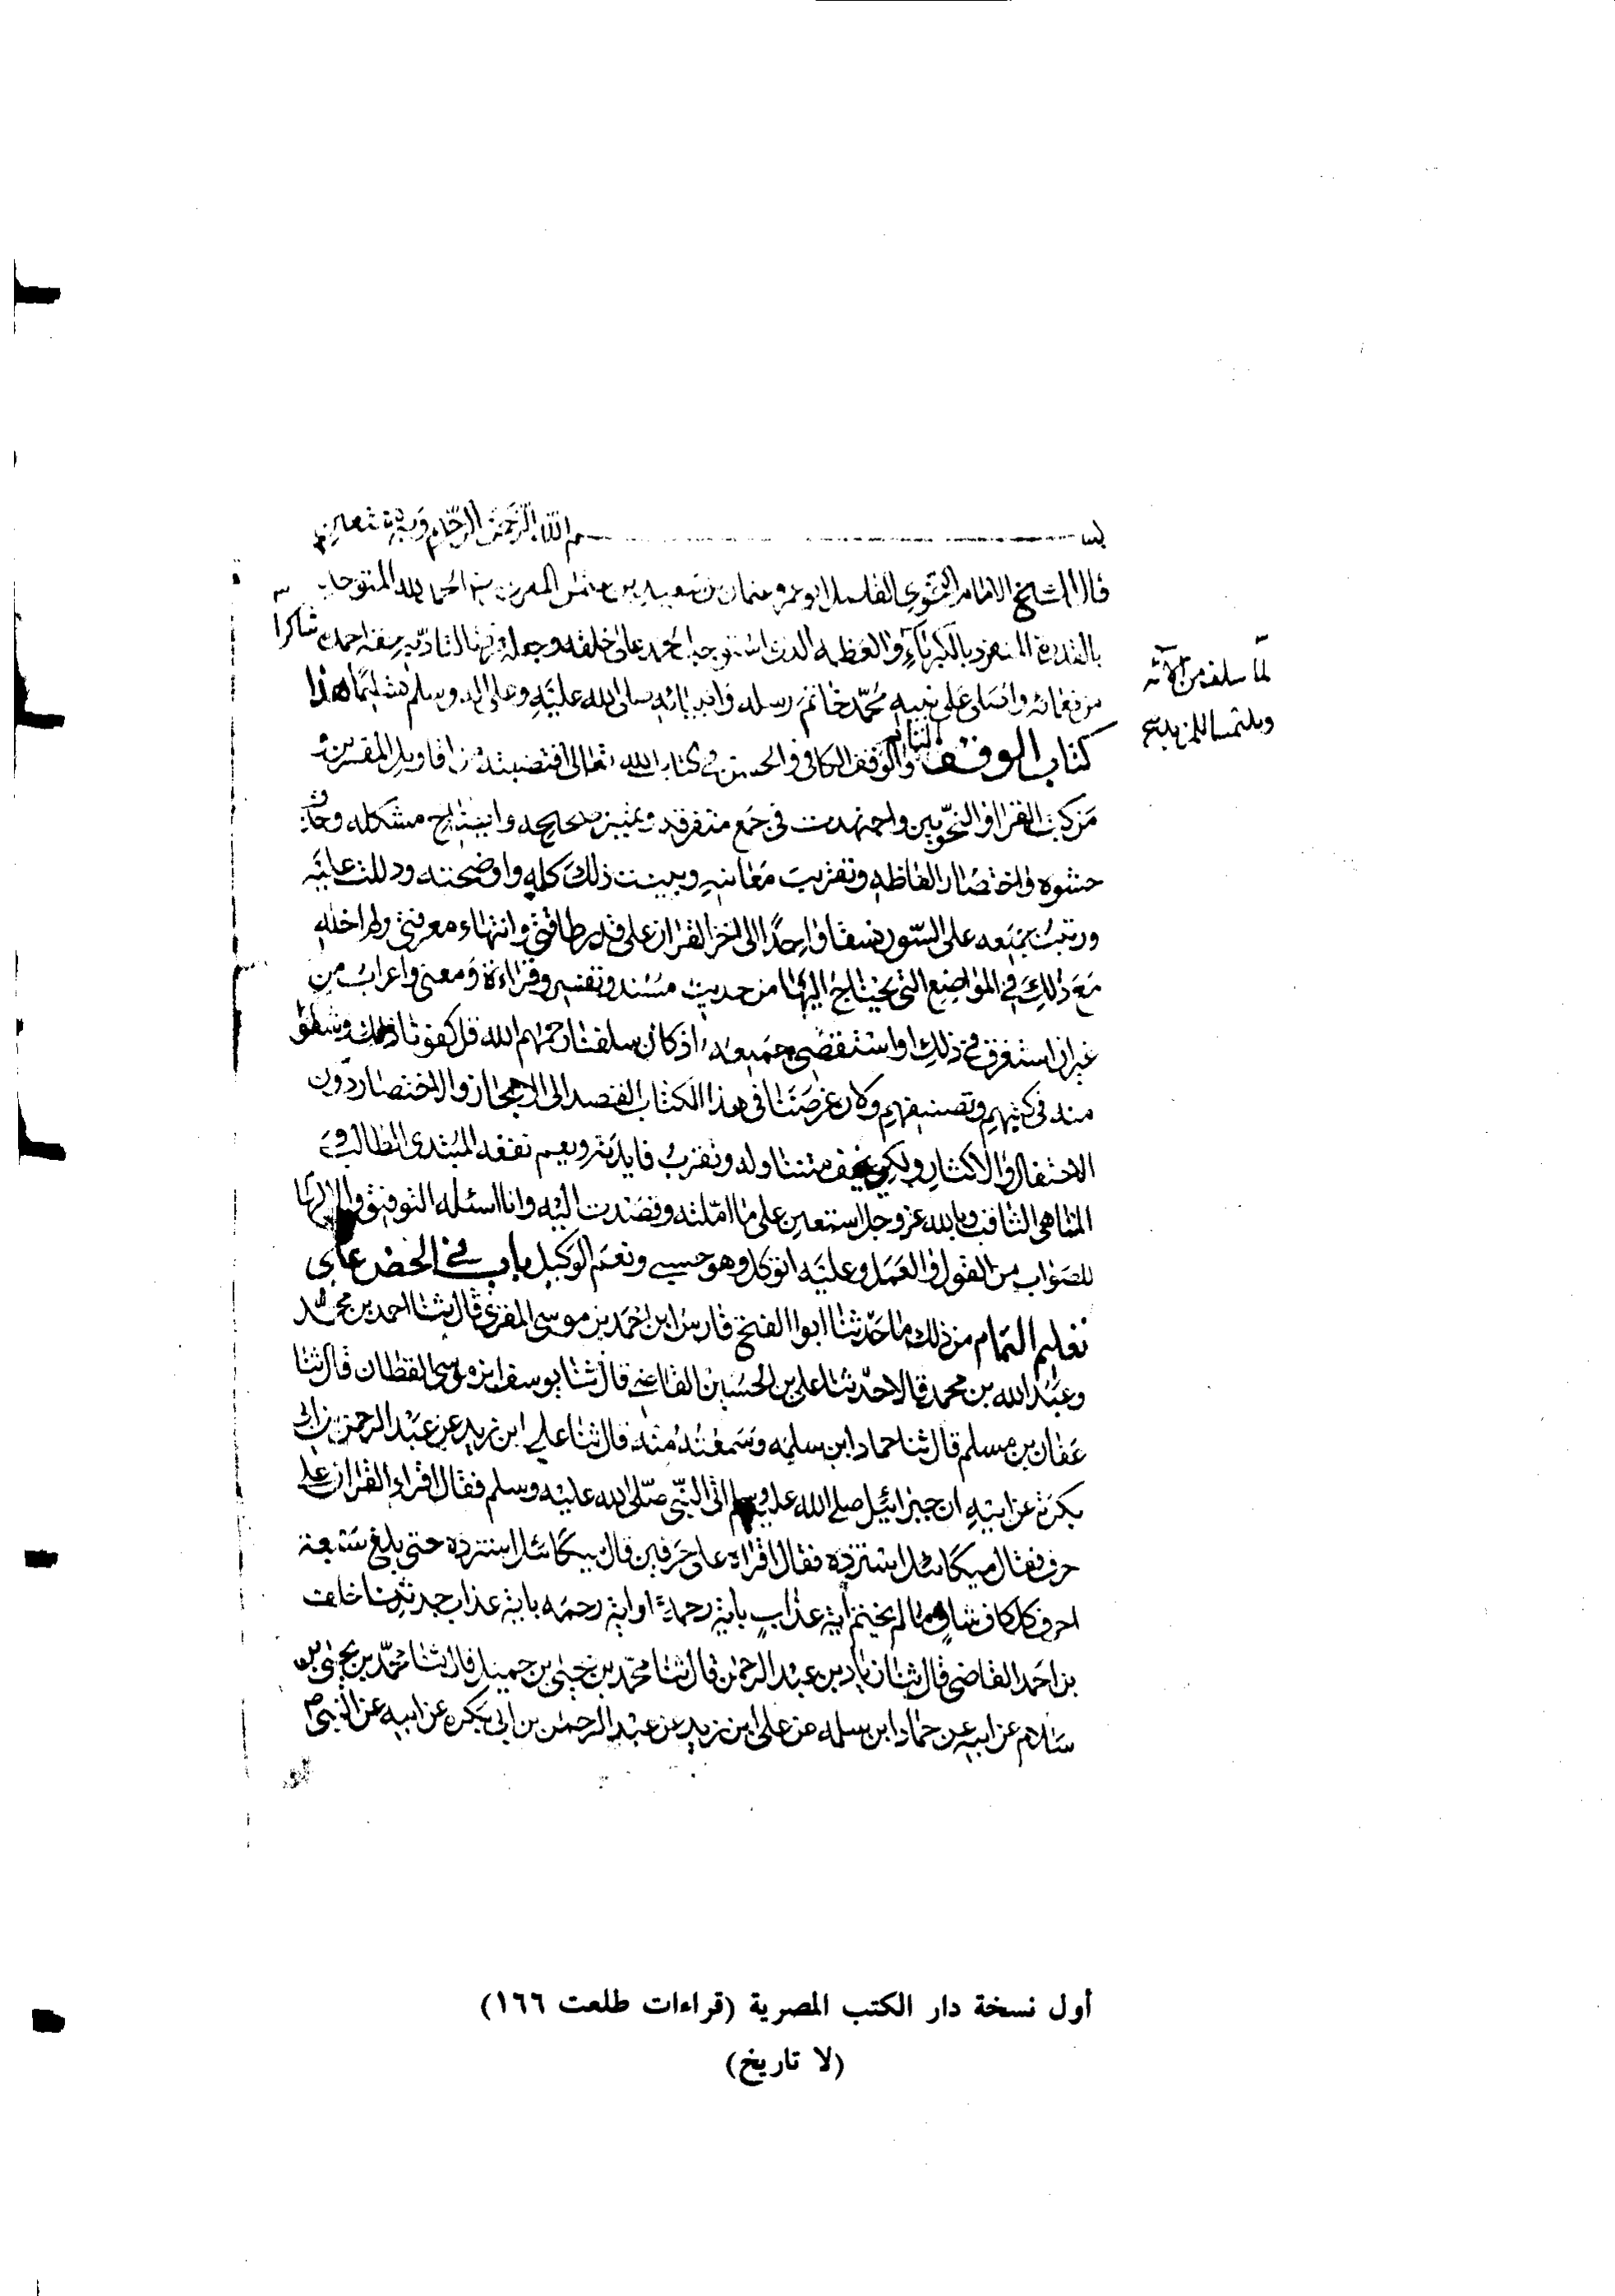 بسم الله الرحمن الرحيم وبه نستعين
قال الشيخ الامام المقري الفاضل ابو عمرو عثمان بن سعيد بن عثمن المقري الحمد لله المتوحد
بالقدرة المنفرد بالكبرياء والعظمة الذي استوجب الحمد على خلقه وجعله فرضا لتادية حقه احمده شاكرا
لما سلف من آلائه
وملتمسا للمزيد
من نعمائه واصلي على نبيه محمد خاتم رسله وانبيائه صلى الله عليه وعلى اله وسلم تسليما هذا
كتاب الوقف التام والوقف الكافي والحسن في كتاب الله تعالى اقتضبته من اقاويل المفسرين و
من كتب القرا والنحويين واجتهدت في جمع متفرقه وتمييز صحيحه وايضاح مشكله وحذف
حشوه واختصار الفاظه وتقريب معانيه وبينت ذلك كله واوضحته ودللت عليه
ورتبت جميعه على السور نسقا واحدا الى اخر القران على قدر طاقتي وانتهاء معرفتي ولم اخله
مع ذلك في المواضع التي يحتاج اليها من حديث مسند وتفسير وقراءة ومعنى واعراب من
غير ان استغرق في ذلك او استقصي جميعه اذ كان سلفنا رحمهم الله قد كفونا ذلك وشفوا
منه في كتبهم وتصنيفهم وكان غرضنا في هذا الكتاب القصد الى الايجاز والاختصار دون
الاحتفال والاكثار ولكي يخف متناوله وتقرب فايدته ويعم نفعه المبتدي الطالب و
المتناهي الثاقب وبالله عز وجل استعين على ما املته وقصدت اليه وانا اسئله التوفيق والالهام
للصواب من القول والعمل وعليه اتوكل وهو حسبي ونعم الوكيل باب في الحض على
تعليم التمام من ذلك ما حدثنا ابوا الفتح فارس ابن احمد بن موسى المقري قال ثنا احمد بن محمد
وعبد الله بن محمد قالا حدثنا علي بن الحسين القاضي قال ثنا يوسف ابن موسى القطان قال ثنا
عفان بن مسلم قال ثنا حماد ابن سلمه وسمعته منه قال ثنا علي ابن زيد عن عبد الرحمن بن ابي
بكرة عن ابيه ان جبرائيل صلى الله عليه وسلم اتى النبي صلى الله عليه وسلم فقال اقراء القران على
حرف فقال ميكائل استزده فقال اقراه على حرفين قال ميكائل استزده حتى بلغ سبعة
احرف كل كاف شاف ما لم يختم اية عذاب باية رحمة او اية رحمه باية عذاب حدثنا خلف
بن احمد القاضي قال ثنا زياد بن عبد الرحمن قال ثنا محمد بن يحيى بن حميد قال ثنا محمد بن يحيى بن
سلام عن ابيه عن حماد ابن سلمه عن علي ابن زيد عن عبد الرحمن بن ابي بكرة عن ابيه عن النبي
أول نسخة دار الكتب المصرية (قراءات طلعت ١٦٦)
(لا تاريخ)